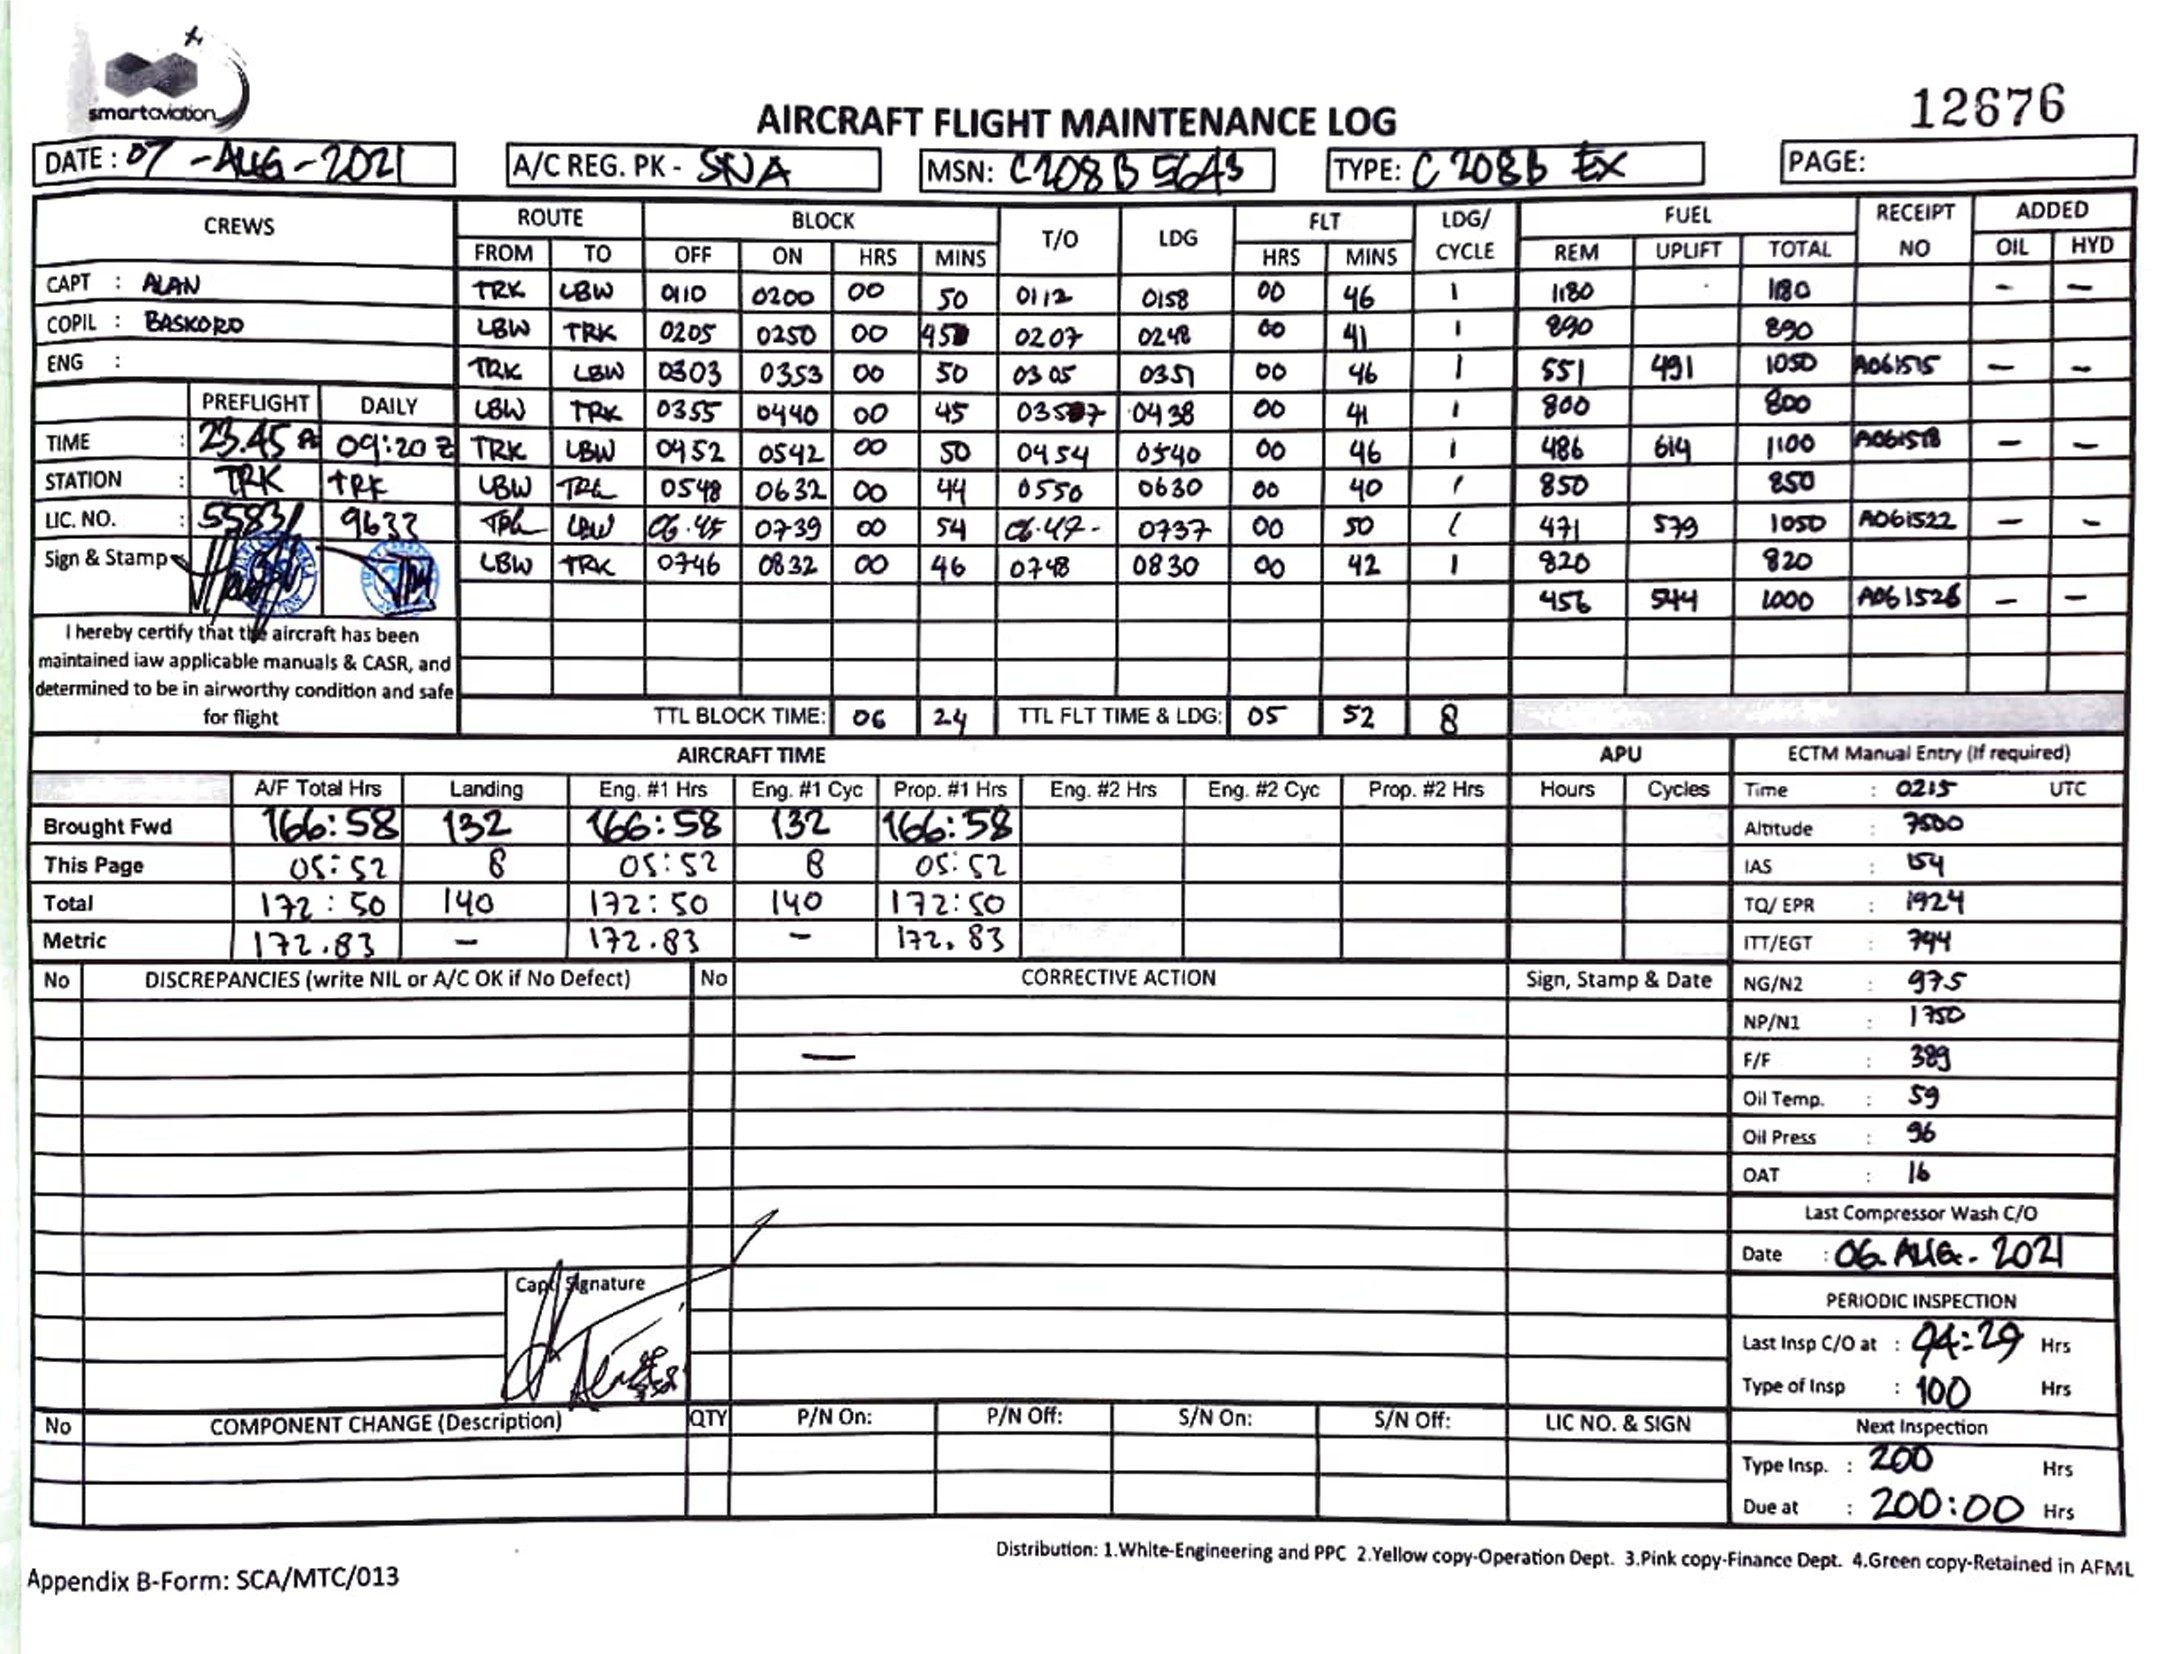 smartaviation
12676
AIRCRAFT FLIGHT MAINTENANCE LOG
DATE : 07 - AUG - 2021 A/C REG. PK - SNA MSN: C208B 5643 TYPE: C 208B EX PAGE:
CREWS ROUTE BLOCK T/O LDG FLT LDG/ CYCLE FUEL RECEIPT NO ADDED
FROM TO OFF ON HRS MINS HRS MINS REM UPLIFT TOTAL OIL HYD
CAPT : ALAN TRK LBW 0110 0200 00 50 0112 0158 00 46 1 1180 1180 - -
COPIL : BASKORO LBW TRK 0205 0250 00 45 0207 0248 00 41 1 890 890
ENG : TRK LBW 0303 0353 00 50 0305 0351 00 46 1 551 491 1050 A061515 - -
PREFLIGHT DAILY LBW TRK 0355 0440 00 45 0357 0438 00 41 1 800 800
TIME : 23.45 09:20 Z TRK LBW 0452 0542 00 50 0454 0540 00 46 1 486 614 1100 A061518 - -
STATION : TRK TRK LBW TRK 0548 0632 00 44 0550 0630 00 40 1 850 850
LIC. NO. : 5583 9633 TRK LBW 06.45 0739 00 54 06.47- 0737 00 50 1 471 579 1050 A061522 - -
Sign & Stamp LBW TRK 0746 0832 00 46 0748 0830 00 42 1 820 820
456 544 1000 A061526 - -
I hereby certify that the aircraft has been
maintained iaw applicable manuals & CASR, and
determined to be in airworthy condition and safe
for flight
TTL BLOCK TIME: 06 24 TTL FLT TIME & LDG: 05 52 8
AIRCRAFT TIME APU ECTM Manual Entry (If required)
A/F Total Hrs Landing Eng. #1 Hrs Eng. #1 Cyc Prop. #1 Hrs Eng. #2 Hrs Eng. #2 Cyc Prop. #2 Hrs Hours Cycles Time : 0215 UTC
Brought Fwd 166:58 132 166:58 132 166:58 Altitude : 7500
This Page 05:52 8 05:52 8 05:52 IAS : 154
Total 172:50 140 172:50 140 172:50 TQ/ EPR : 1924
Metric 172.83 - 172.83 - 172.83 ITT/EGT : 744
No DISCREPANCIES (write NIL or A/C OK if No Defect) No CORRECTIVE ACTION Sign, Stamp & Date NG/N2 : 975
NP/N1 : 1750
F/F : 389
Oil Temp. : 59
Oil Press : 96
OAT : 16
Last Compressor Wash C/O
Date : 06. AUG. - 2021
Capt Signature
PERIODIC INSPECTION
Last Insp C/O at : 94:29 Hrs
Type of Insp : 100 Hrs
No COMPONENT CHANGE (Description) QTY P/N On: P/N Off: S/N On: S/N Off: LIC NO. & SIGN Next Inspection
Type Insp. : 200 Hrs
Due at : 200:00 Hrs
Distribution: 1.White-Engineering and PPC 2.Yellow copy-Operation Dept. 3.Pink copy-Finance Dept. 4.Green copy-Retained in AFML
Appendix B-Form: SCA/MTC/013